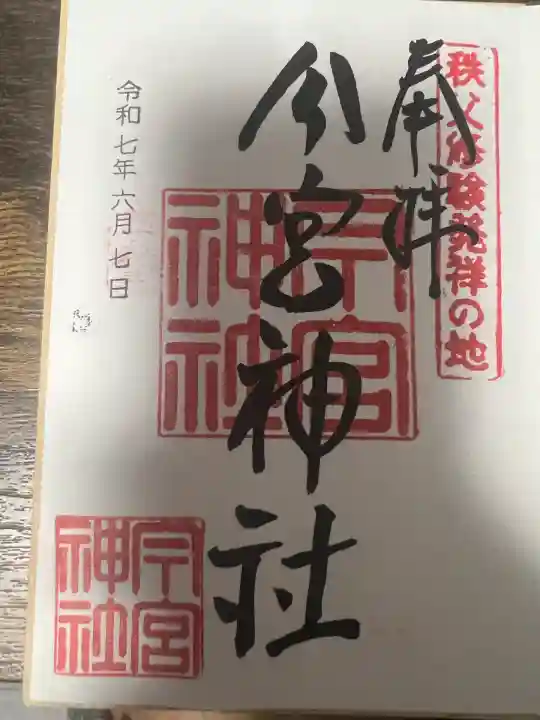 秩父修験発祥の地
奉拝
今宮神社
今宮
神社
令和七年六月七日
今宮
神社